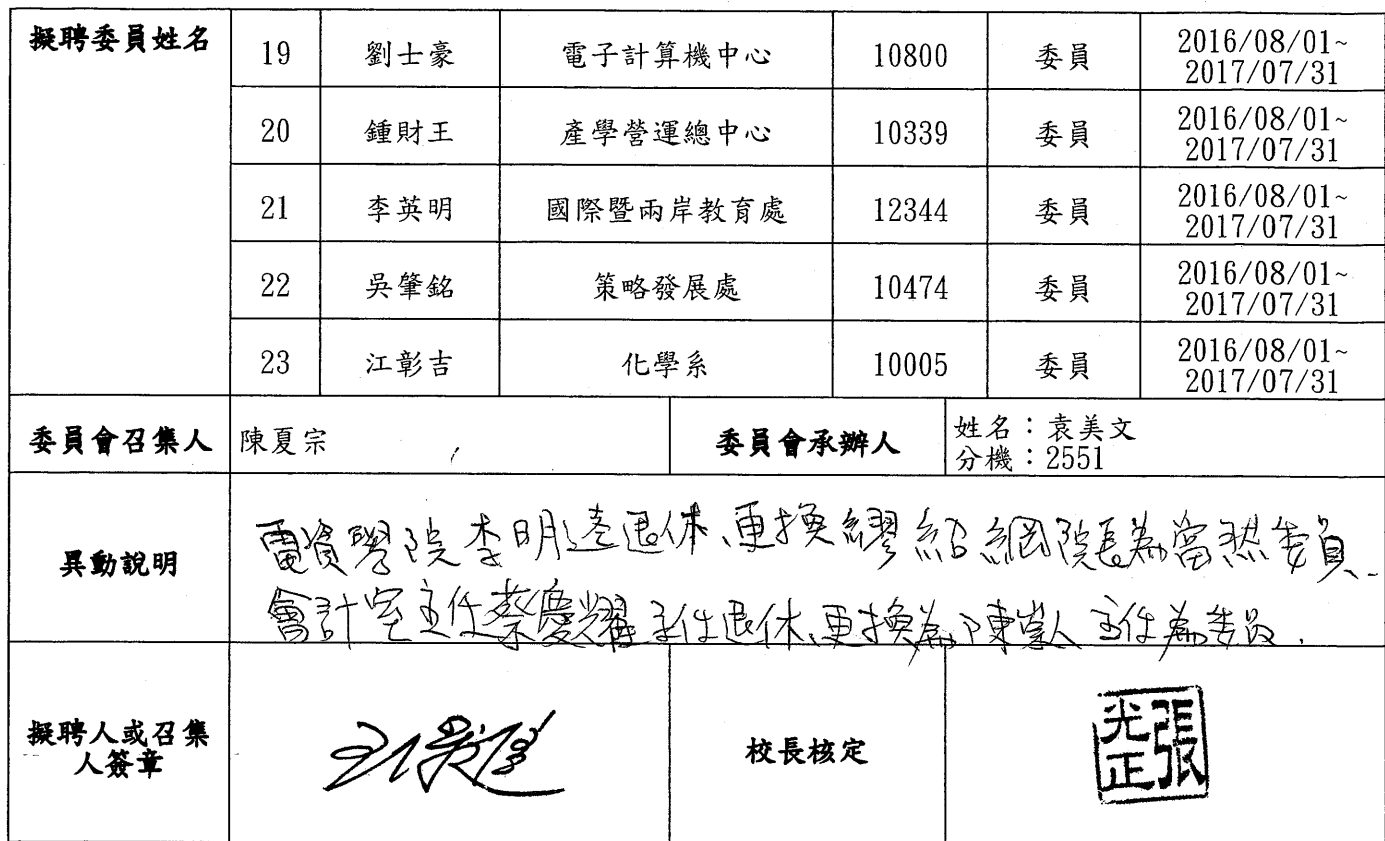 擬聘委員姓名
19 劉士豪 電子計算機中心 10800 委員 2016/08/01~
2017/07/31
20 鍾財王 產學營運總中心 10339 委員 2016/08/01~
2017/07/31
21 李英明 國際暨兩岸教育處 12344 委員 2016/08/01~
2017/07/31
22 吳肇銘 策略發展處 10474 委員 2016/08/01~
2017/07/31
23 江彰吉 化學系 10005 委員 2016/08/01~
2017/07/31
委員會召集人 陳夏宗 委員會承辦人 姓名：袁美文
分機：2551
異動說明
電資學院李明達退休、更換繆紹綱院長為當然委員.
會計室主任蔡慶耀主任退休、更換為陳崇人主任為委員.
擬聘人或召集
人簽章
校長核定
張光正